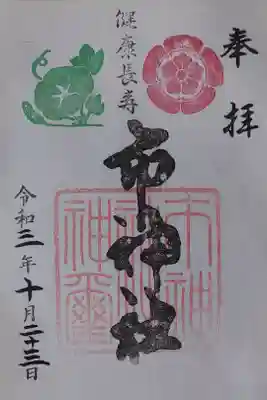 奉拝
健康長寿
市神社
令和三年十月二十三日